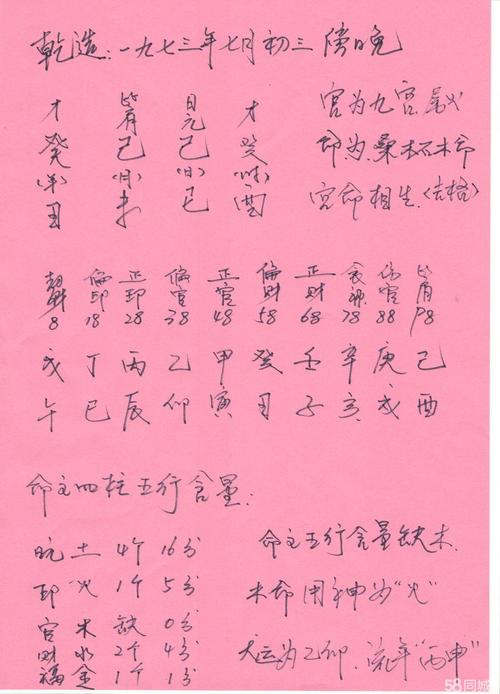 乾造：一九七三年七月初三傍晚
才 比肩 日元 才
癸 己 己 癸
(年) (月) (日) (时)
丑 未 巳 酉
宫为九宫属火
命为桑柘木命
宫命相生(吉格)
劫财 偏印 正印 偏官 正官 偏财 正财 食神 伤官 比肩
8 18 28 38 48 58 68 78 88 98
戊 丁 丙 乙 甲 癸 壬 辛 庚 己
午 巳 辰 卯 寅 丑 子 亥 戌 酉
命主四柱五行含量：
土 4个 16分
印 火 1个 5分
官 木 缺 0分
财 水 2个 4分
福 金 1个 1分
命主五行含量缺木.
木命用神为“火”
大运为乙卯.流年“丙申”
58同城